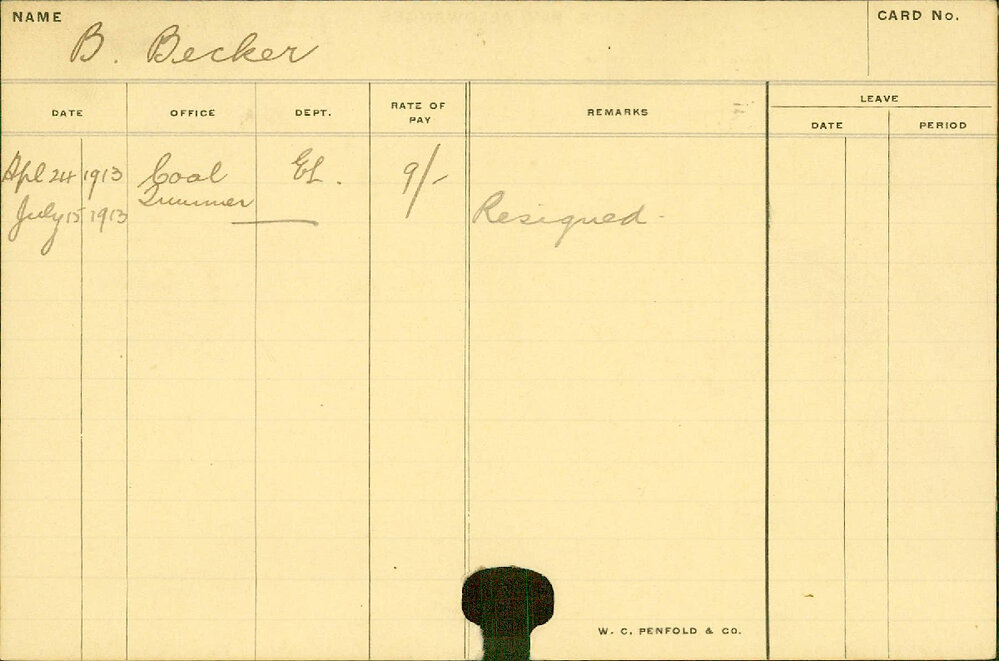 NAME
B. Becker
CARD No.
DATE
OFFICE
DEPT.
RATE OF
PAY
REMARKS
LEAVE
DATE
PERIOD
Apl 24 1913 Coal EL. 9/-
Trimmer
July 15 1913 Resigned.
W. C. PENFOLD & CO.